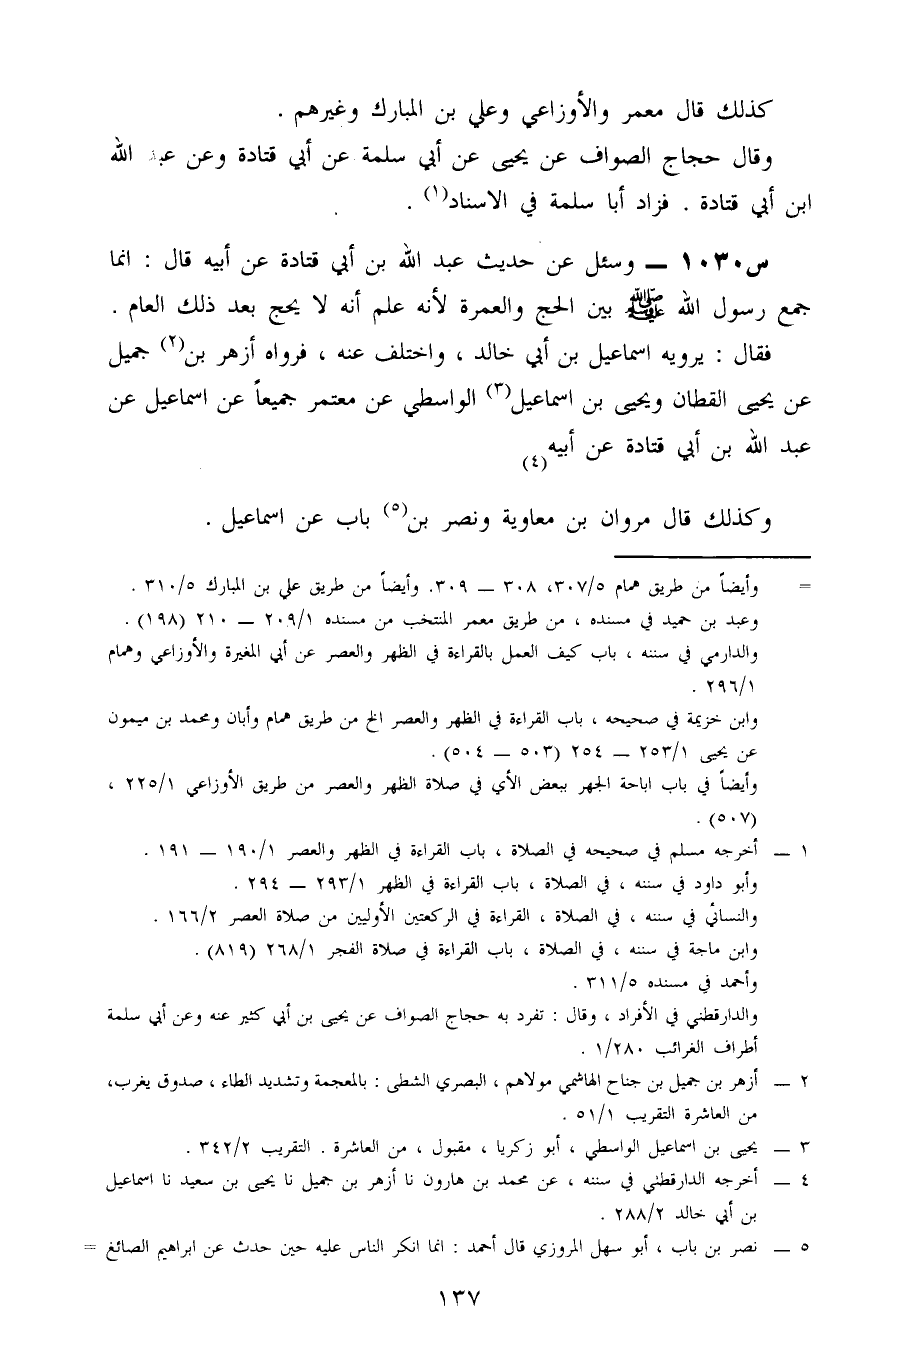 كذلك قال معمر والأوزاعي وعلي بن المبارك وغيرهم .
وقال حجاج الصواف عن يحيى عن أبي سلمة عن أبي قتادة وعن عبد الله
ابن أبي قتادة . فزاد أبا سلمة في الاسناد(١) .
س١٠٣٠ ــ وسئل عن حديث عبد الله بن أبي قتادة عن أبيه قال : انما
جمع رسول الله ﷺ بين الحج والعمرة لأنه علم أنه لا يحج بعد ذلك العام .
فقال : يرويه اسماعيل بن أبي خالد ، واختلف عنه ، فرواه أزهر بن(٢) جميل
عن يحيى القطان ويحيى بن اسماعيل(٣) الواسطي عن معتمر جميعاً عن اسماعيل عن
عبد الله بن أبي قتادة عن أبيه(٤)
وكذلك قال مروان بن معاوية ونصر بن(٥) باب عن اسماعيل .
= وأيضاً من طريق همام ٣٠٧/٥، ٣٠٨ ــ ٣٠٩. وأيضاً من طريق علي بن المبارك ٣١٠/٥ .
وعبد بن حميد في مسنده ، من طريق معمر المنتخب من مسنده ٢٠٩/١ ــ ٢١٠ (١٩٨) .
والدارمي في سننه ، باب كيف العمل بالقراءة في الظهر والعصر عن أبي المغيرة والأوزاعي وهمام
٢٩٦/١ .
وابن خزيمة في صحيحه ، باب القراءة في الظهر والعصر الخ من طريق همام وأبان ومحمد بن ميمون
عن يحيى ٢٥٣/١ ــ ٢٥٤ (٥٠٣ ــ ٥٠٤) .
وأيضاً في باب اباحة الجهر ببعض الأي في صلاة الظهر والعصر من طريق الأوزاعي ٢٢٥/١ ،
(٥٠٧) .
١ ــ أخرجه مسلم في صحيحه في الصلاة ، باب القراءة في الظهر والعصر ١٩٠/١ ــ ١٩١ .
وأبو داود في سننه ، في الصلاة ، باب القراءة في الظهر ٢٩٣/١ ــ ٢٩٤ .
والنسائي في سننه ، في الصلاة ، القراءة في الركعتين الأوليين من صلاة العصر ١٦٦/٢ .
وابن ماجة في سننه ، في الصلاة ، باب القراءة في صلاة الفجر ٢٦٨/١ (٨١٩) .
وأحمد في مسنده ٣١١/٥ .
والدارقطني في الأفراد ، وقال : تفرد به حجاج الصواف عن يحيى بن أبي كثير عنه وعن أبي سلمة
أطراف الغرائب ١/٢٨٠ .
٢ ــ أزهر بن جميل بن جناح الهاشمي مولاهم ، البصري الشطى : بالمعجمة وتشديد الطاء ، صدوق يغرب،
من العاشرة التقريب ٥١/١ .
٣ ــ يحيى بن اسماعيل الواسطي ، أبو زكريا ، مقبول ، من العاشرة . التقريب ٣٤٢/٢ .
٤ ــ أخرجه الدارقطني في سننه ، عن محمد بن هارون نا أزهر بن جميل نا يحيى بن سعيد نا اسماعيل
بن أبي خالد ٢٨٨/٢ .
٥ ــ نصر بن باب ، أبو سهل المروزي قال أحمد : انما انكر الناس عليه حين حدث عن ابراهيم الصائغ =
١٣٧